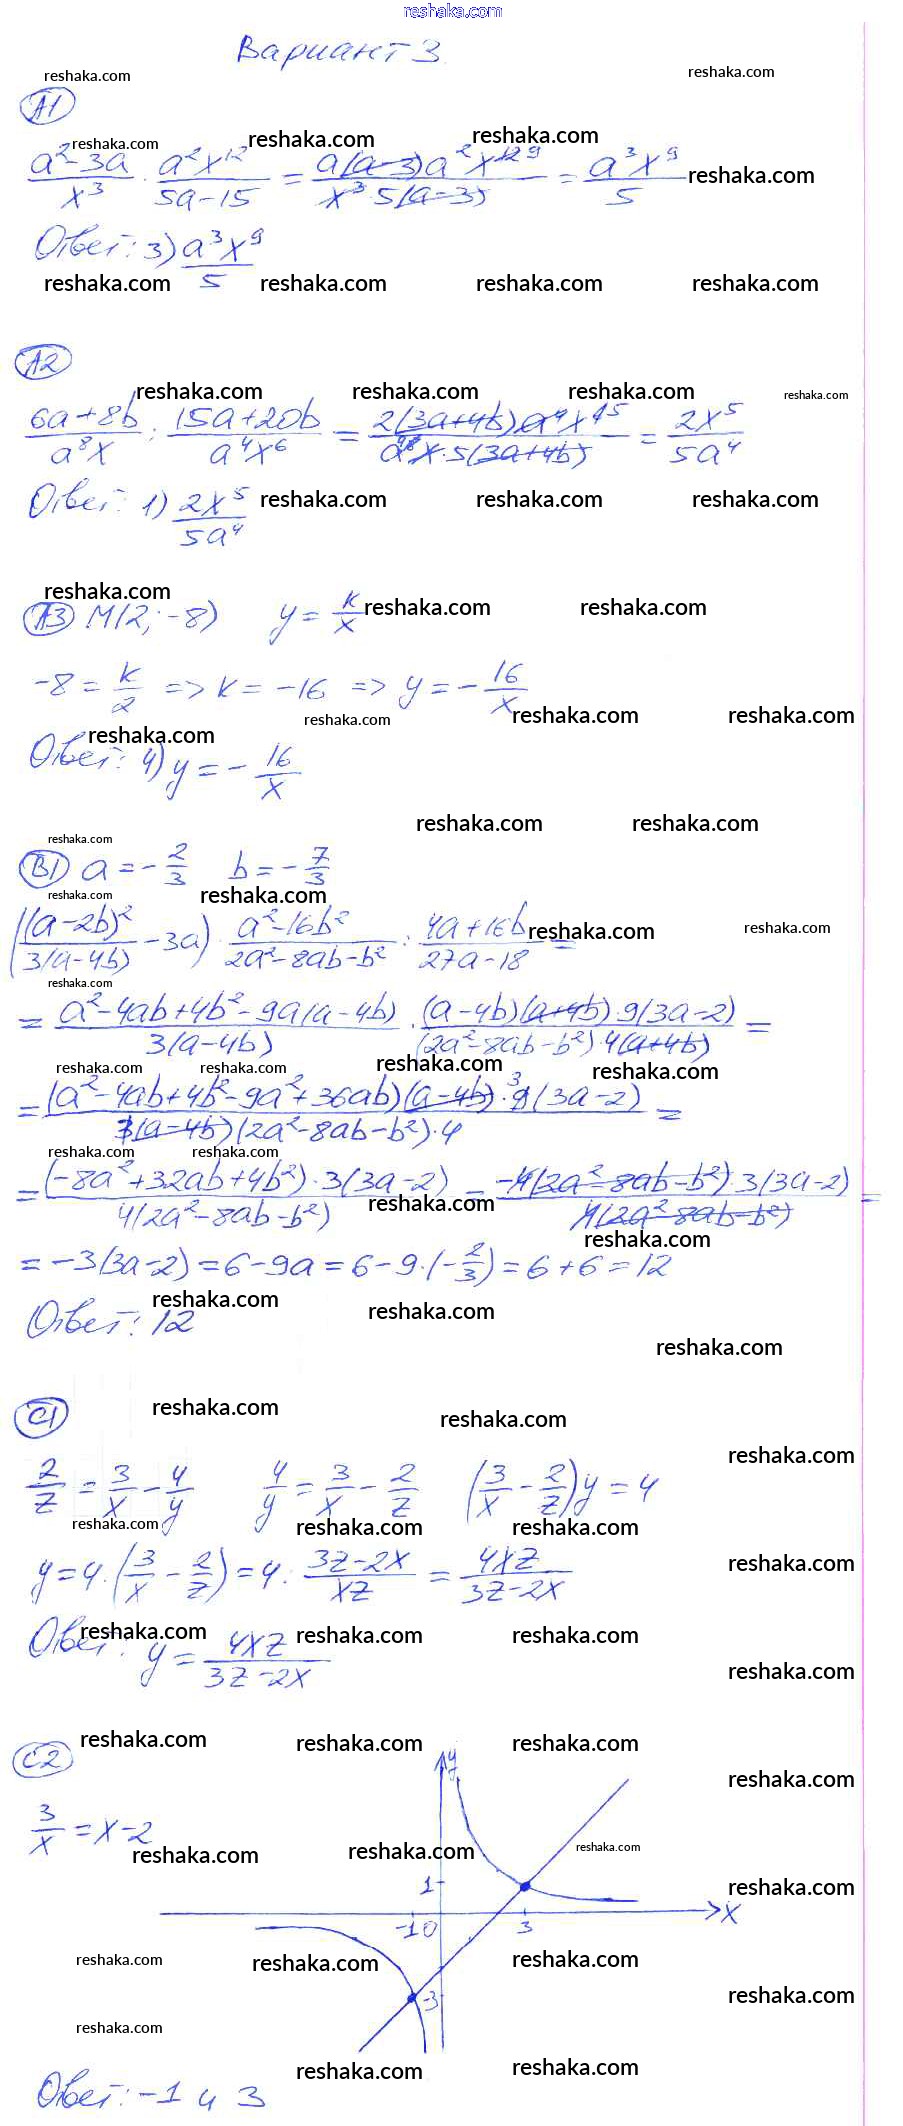 reshaka.com
Вариант 3
reshaka.com reshaka.com
А1
reshaka.com reshaka.com reshaka.com
(a² - 3a)/x³ · (a²x¹²)/(5a - 15) = (a(a - 3)a²x¹²⁹)/(x³ · 5(a - 3)) = (a³x⁹)/5 reshaka.com
Ответ: 3) (a³x⁹)/5
reshaka.com reshaka.com reshaka.com reshaka.com
А2
reshaka.com reshaka.com reshaka.com reshaka.com
(6a + 8b)/(a⁸x) : (15a + 20b)/(a⁴x⁶) = (2(3a + 4b)a⁴x⁶⁵)/(a⁸⁴x · 5(3a + 4b)) = (2x⁵)/(5a⁴)
Ответ: 1) (2x⁵)/(5a⁴) reshaka.com reshaka.com reshaka.com
reshaka.com
А3 M(2; -8) y = k/x reshaka.com reshaka.com
-8 = k/2 => k = -16 => y = -16/x
reshaka.com reshaka.com reshaka.com
reshaka.com
Ответ: 4) y = -16/x
reshaka.com reshaka.com
reshaka.com
В1 a = -2/3 b = -7/3
reshaka.com reshaka.com
((a - 2b)²/(3(a - 4b)) - 3a) · (a² - 16b²)/(2a² - 8ab - b²) : (4a + 16b)/(27a - 18) = reshaka.com reshaka.com
reshaka.com
= (a² - 4ab + 4b² - 9a(a - 4b))/(3(a - 4b)) · ((a - 4b)(a + 4b) · 9(3a - 2))/((2a² - 8ab - b²) · 4(a + 4b)) =
reshaka.com reshaka.com reshaka.com reshaka.com
= ((a² - 4ab + 4b² - 9a² + 36ab)(a - 4b) · 9³(3a - 2))/(3(a - 4b)(2a² - 8ab - b²) · 4) =
reshaka.com reshaka.com
= ((-8a² + 32ab + 4b²) · 3(3a - 2))/(4(2a² - 8ab - b²)) = (-4(2a² - 8ab - b²) · 3(3a - 2))/(4(2a² - 8ab - b²)) =
reshaka.com reshaka.com
= -3(3a - 2) = 6 - 9a = 6 - 9 · (-2/3) = 6 + 6 = 12
reshaka.com reshaka.com
Ответ: 12
reshaka.com
С1 reshaka.com reshaka.com
reshaka.com
2/z = 3/x - 4/y 4/y = 3/x - 2/z (3/x - 2/z)y = 4
reshaka.com reshaka.com reshaka.com
y = 4 : (3/x - 2/z) = 4 : (3z - 2x)/(xz) = (4xz)/(3z - 2x) reshaka.com
reshaka.com reshaka.com reshaka.com
Ответ: y = (4xz)/(3z - 2x)
reshaka.com
С2 reshaka.com reshaka.com reshaka.com
y
reshaka.com
3/x = x - 2
reshaka.com reshaka.com reshaka.com
1 reshaka.com
x
-1 0 3
reshaka.com reshaka.com reshaka.com
-3 reshaka.com
reshaka.com
reshaka.com reshaka.com
Ответ: -1 и 3